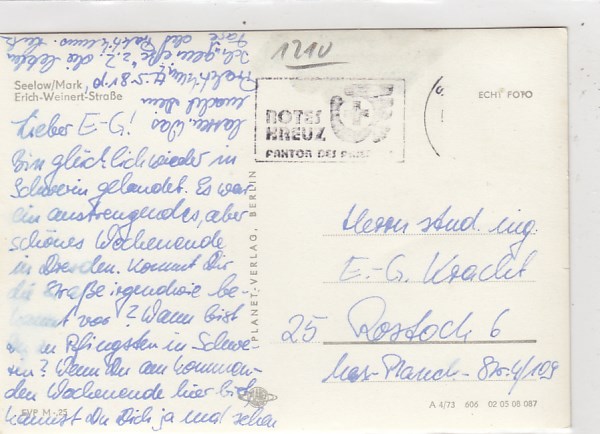 1210
Seelow/Mark
Erich-Weinert-Straße
Lieber E-G!
Bin glücklich wieder in
Schwerin gelandet. Es war
ein anstrengendes, aber
schönes Wochenende
in Dresden. Kommt Dir
die Straße irgendwie be-
kannt vor? Wann bist
Du Pfingsten in Schwe-
rin? Wenn Du am kommen-
den Wochenende hier bist,
kannst Du Dich ja mal sehen
lassen. Was
macht Dein
Praktikum?
EVP M -,25
(PLANET-VERLAG, BERLIN
ROTES
KREUZ
FAKTOR DES
ECHT FOTO
Herrn stud. ing.
E.-G. Kracht
25 Rostock 6
Max-Planck-Str. 4/109
A 4/73 606 02 05 08 087